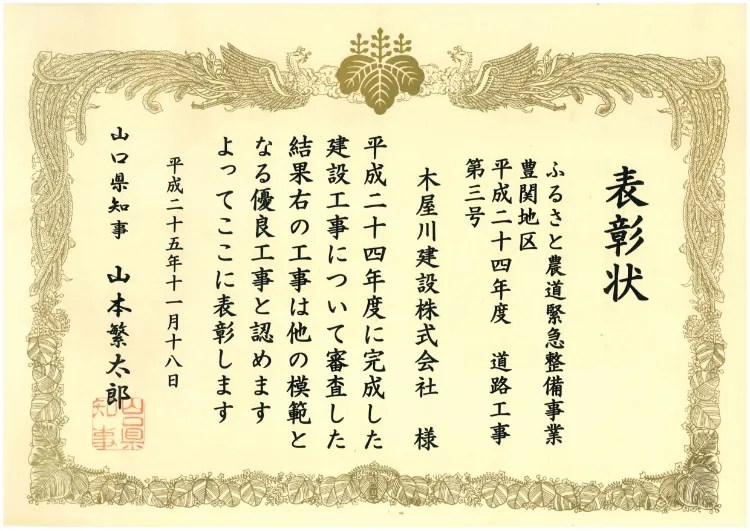 表彰状
ふるさと農道緊急整備事業
豊関地区
平成二十四年度　道路工事
第三号
木屋川建設株式会社　様
平成二十四年度に完成した
建設工事について審査した
結果右の工事は他の模範と
なる優良工事と認めます
よってここに表彰します
平成二十五年十一月十八日
山口県知事　山本繁太郎
山口県
知事